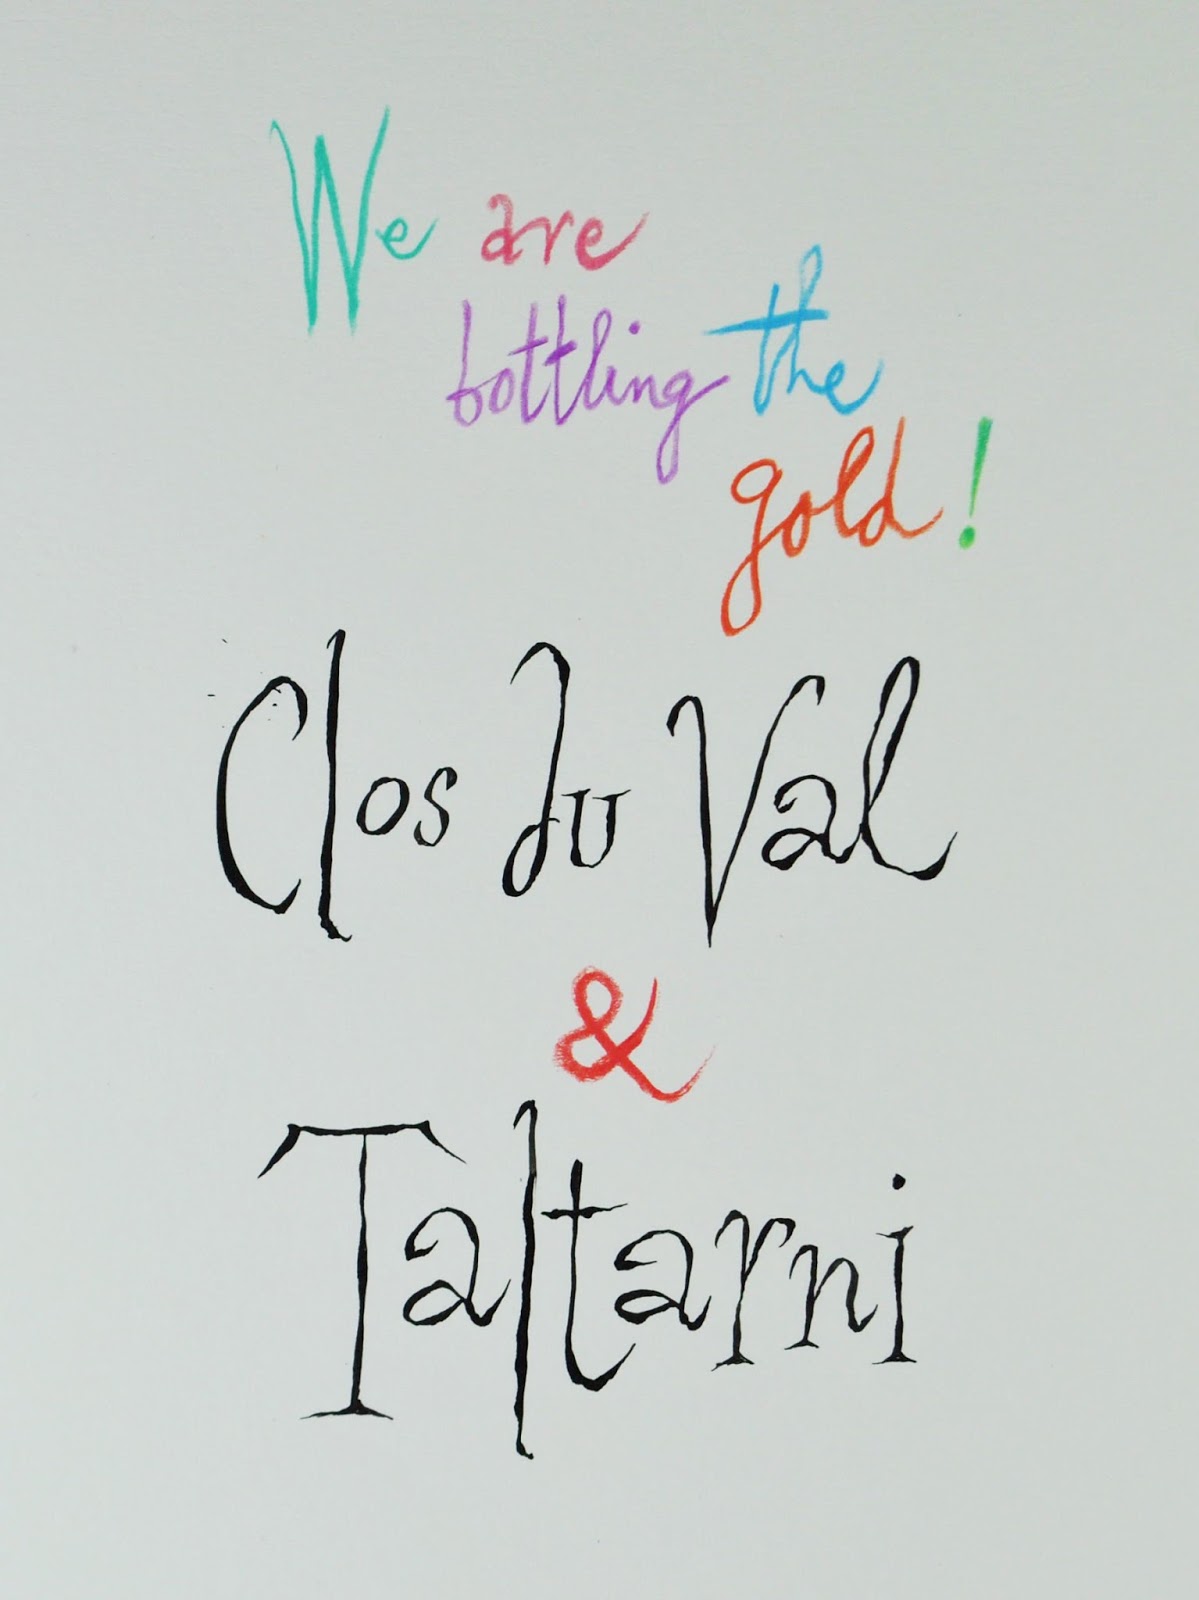 We are
bottling the
gold!
Clos du Val
&
Taltarni